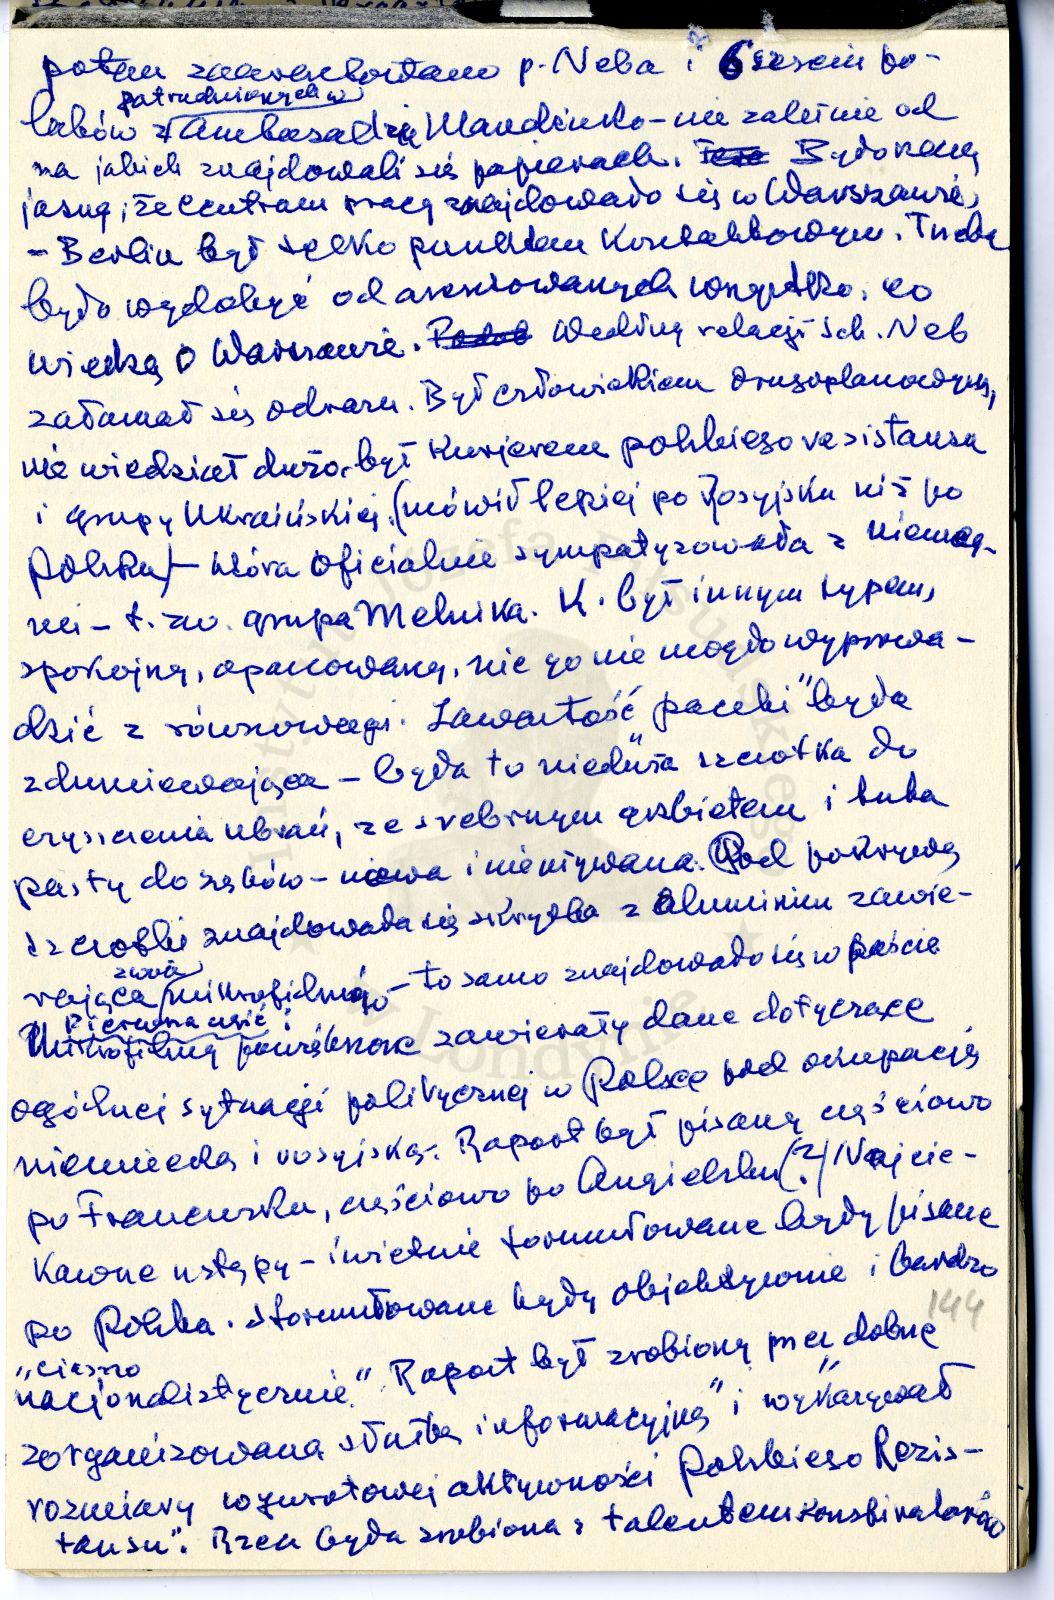 potem zaaresztowano p. Neba i 6 sześciu Po-
zatrudnionych w
laków z Ambasadzie Mandżuko - nie zależnie od
na jakich znajdowali się papierach. Było rzeczą
jasną, że centrum pracy znajdowało się w Warszawie,
- Berlin był tylko punktem kontaktowym. Trzeba
było wydobyć od aresztowanych wszystko, co
wiedzą o Warszawie. Według relacji Sch. Neb
załamał się odrazu. Był człowiekiem drugoplanowym,
nie wiedział dużo, był kurjerem polskiego resistansu
i grupy Ukraińskiej (mówił lepiej po Rosyjsku niż po
Polsku) - która oficialnie sympatyzowała z niemca-
mi - t. zw. grupa Melnika. K. był innym typem,
spokojny, opanowany, nic go nie mogło wyprowa-
dzić z równowagi. Zawartość "paczki" była
zdumiewająca - była to nieduża szczotka do
czyszczenia ubrań, ze srebrnym grzbietem i tuba
pasty do zębów - nowa i nieużywana. Pod pokrywą
szczotki znajdowała się skrytka z aluminium zawie-
zwój
rająca mikrofilmów - to samo znajdowało się w paście
Pierwsza część:
Mikrofilmy zawierały dane dotyczące
ogólnej sytuacji politycznej w Polsce pod okupacją
niemiecką i rosyjską. Raport był pisany częściowo
po Francusku, częściowo po Angielsku (?) Najcie-
kawsze ustępy - świetnie sformułowane były pisane
po Polsku. Sformułowane były objektywnie i bardzo
144
"ciasno
nacjonalistycznie". Raport był zrobiony przez dobrze
zorganizowaną służbę informacyjną" i "wykazywał
rozmiary wywrotowej aktywności Polskiego Rezis-
tansu". Rzecz była zrobiona z talentem konspiratorów
Instytut Józefa Piłsudskiego
w Londynie